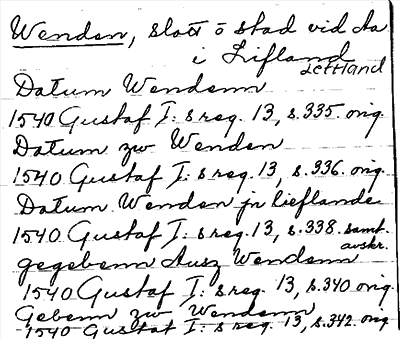 Wenden, slott o stad vid Aa
i Lifland
Lettland
Datum Wendenn
1540 Gustaf I: s reg. 13, s. 335. orig.
Datum zw Wenden
1540 Gustaf I: s reg. 13, s. 336. orig.
Datum Wenden jn lieflande
1540 Gustaf I: s reg. 13, s. 338. samt.
avskr.
gegebenn Ausz Wendenn
1540 Gustaf I: s reg. 13, s. 340 orig.
Gebenn zw Wendenn
1540 Gustaf I: s reg. 13, s. 342. orig.